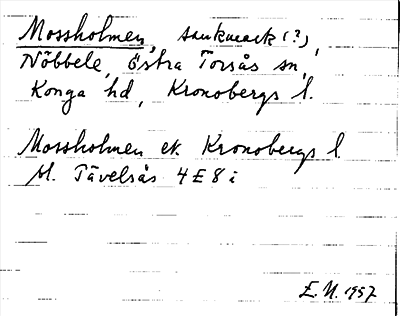 Mossholmen, sankmark (?),
Nöbbele, Östra Torsås sn,
Konga hd, Kronobergs l.
Mossholmen ek. Kronobergs l.
bl. Tävelsås 4E8i
E.N. 1957